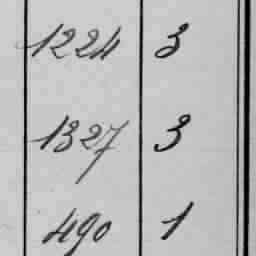 1224 3
1327 3
490 1